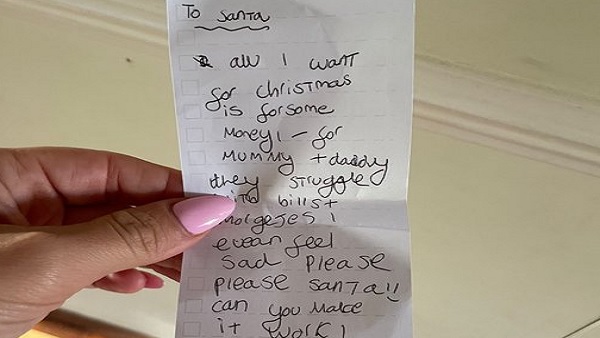 To Santa
all I want
for christmas
is forsome
Money! - for
MUMMY + daddy
they struggle
with bills +
morgeses I
evean feel
sad Please
please santa!!
can you Make
it work!